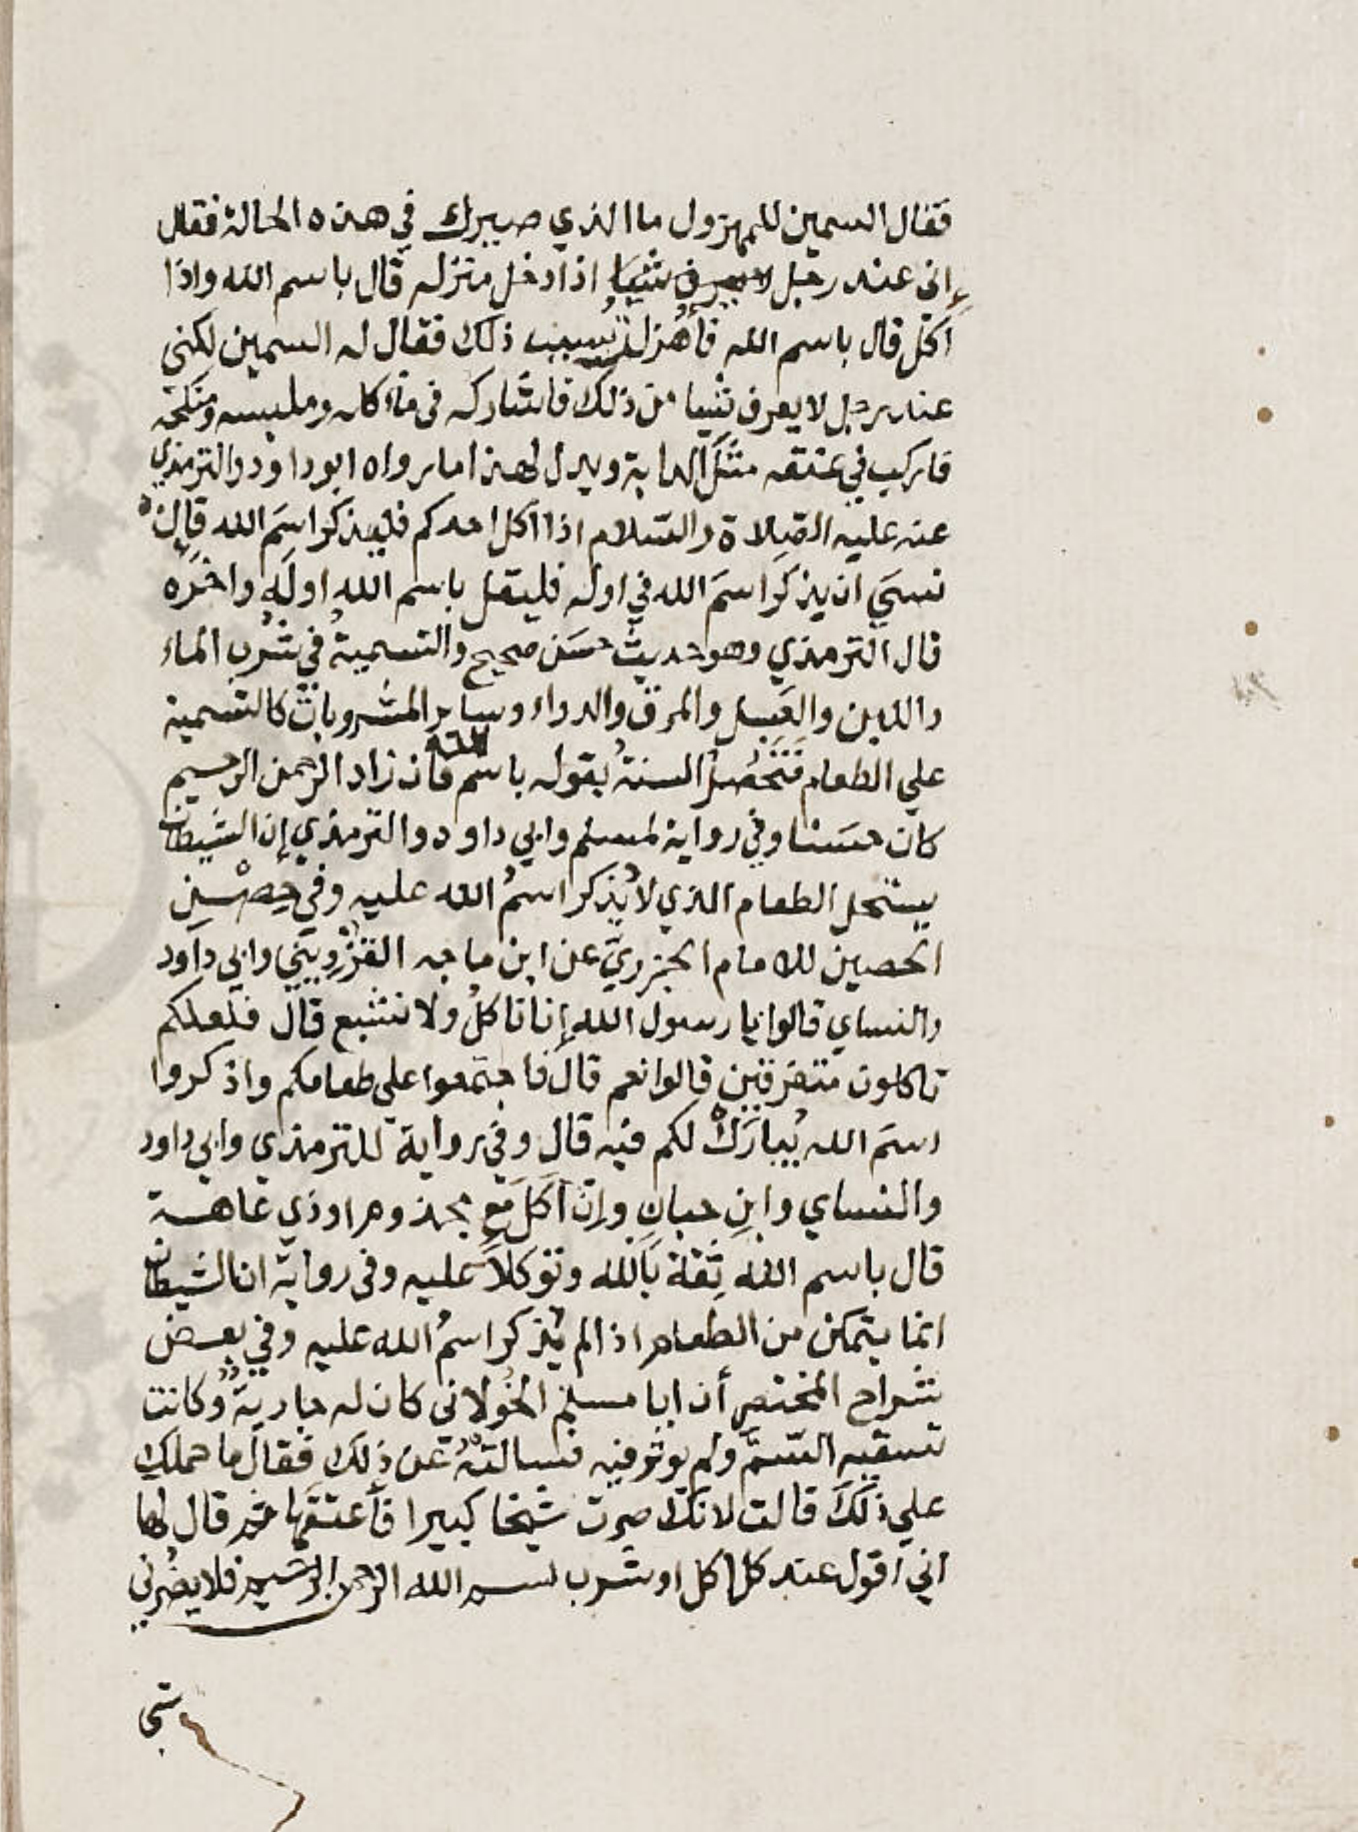 فقال السمين للمهزول ما الذي صيرك في هذه الحالة فقال
إنى عند رجل اذا دخل منزله قال باسم الله واذا
أكل قال باسم الله فأهزلنى بسبب ذلك فقال له السمين لكنى
عند رجل لا يعرف شيا من ذلك فاشاركه فى مأكله وملبسه ومنكحه
فاركب في عنقه مثل الدابة ويدل لهذا ما رواه ابو داود والترمذي
عنه عليه الصلاة والسلام اذا اكل احدكم فليذكر اسمَ الله فإن
نسيَ ان يذكرَ اسمَ الله في اوله فليقل باسم الله اولَه واخرَه
قال الترمذي وهو حديثٌ حسَن صحيح والتسميةُ في شرب الماء
واللبن والعَسل والمرق والدواء وساير المشروبات كالتسمية
علي الطعام فَتَحْصُلُ السنةُ بقوله باسم الله فان زاد الرحمن الرحيم
كان حسَنا وفي رواية لمسلم وابي داود والترمذي إن الشيطان
يستحل الطعام الذي لا يُذكر اسمُ الله عليه وفي حِصْنِ
الحصين للامام الجزريّ عن ابن ماجه القزْوِيني وابي داود
والنساي قالوا يا رسول الله إنا ناكلُ ولا نشبع قال فلعلكم
تاكلون متفرقين قالوا نعم قال فاجتمعوا على طعامكم واذكروا
اسمَ الله يُبارَكْ لكم فيه قال وفي رواية للترمذي وابي داود
والنساي وابنِ حبانِ وإن أكلَ مَع مجذوم او ذي عاهة
قال باسم الله ثِقة بالله وتوكلاً عليه وفى رواية ان الشيطان
انما يتمكن من الطعام اذا لم يُذكر اسمُ الله عليه وفي بعض
شراح المختصر أن ابا مسلم الخَولانى كان له جارية وكانت
تسقيه السّمَّ ولم يوثر فيه فسالتهُ عن ذلك فقال ما حملكِ
علي ذلكَ قالت لانكَ صرت شيخا كبيرا فأعتقها ثم قال لها
اني اقول عند كل اكل او شرب بسم الله الرحمن الرحيم فلا يضُرني